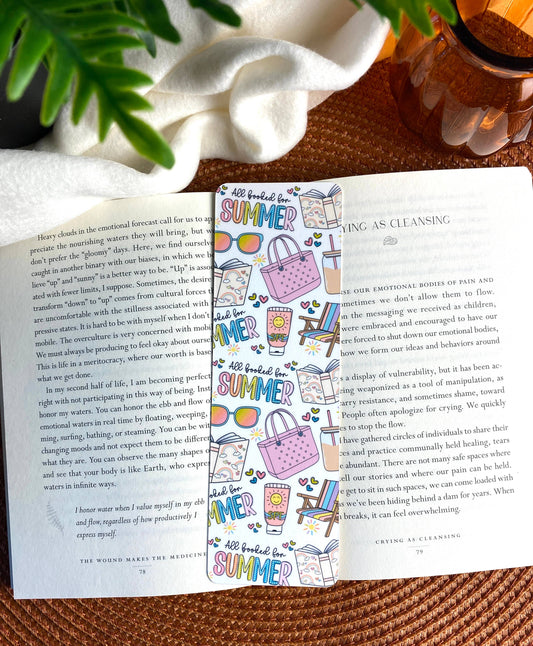 Heavy clouds in the emotional forecast call for us to ap-
preciate the nourishing waters they will bring, but
don't prefer the "gloomy" days. Here, we find ourselves
caught in another binary with our biases, in which be-
lieve "up" and "sunny" is a better way to be. "Up" is associ-
ated with fewer limits, I suppose. Sometimes, the desire
transform "down" to "up" comes from cultural forces
are uncomfortable with the stillness associated with
pressive states. It is hard to be with myself when I don't
mobile. The overculture is very connected with mob
We must always be producing to feel okay about ourse
This is life in a meritocracy, where our worth is base
what we get done.
In my second half of life, I am becoming perfect
right with not participating in this way of being. Inst
honor my waters. You can honor the ebb and flow o
emotional waters in real time by floating, weeping,
ming, surfing, bathing, or steaming. You can be wit
changing moods and not expect them to be differe
what they are. You can observe the many shapes o
and see that your body is like Earth, who expres
waters in infinite ways.
I honor water when I value myself in my ebb
and flow, regardless of how productively I
express myself.
THE WOUND MAKES THE MEDICINE
78
All booked for
SUMMER
SUMMER
SPF
All booked for
SUMMER
booked for
SUMMER
SPF
All booked for
SUMMER
CRYING AS CLEANSING
SE OUR EMOTIONAL BODIES OF PAIN AND
metimes we don't allow them to flow.
n the messaging we received as children,
were embraced and encouraged to have our
re forced to shut down our emotional bodies,
how we form our ideas and behaviors around
s a display of vulnerability, but it has been ac-
eing weaponized as a tool of manipulation, as
ary resistance, and sometimes shame, toward
People often apologize for crying. We quickly
to stop the flow.
have gathered circles of individuals to share their
ractice and communally held healing, tears
e abundant. There are not many safe spaces where
tell our stories and where our pain can be held.
get to sit in such spaces, we can come loaded with
s we've been hiding behind a dam for years. When
breaks, it can feel overwhelming.
CRYING AS CLEANSING
79